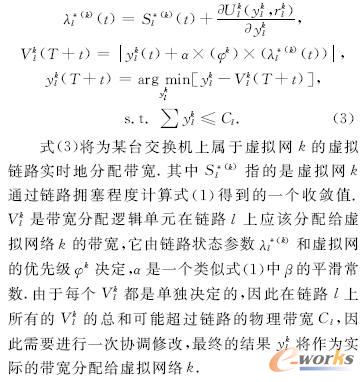 λ_l^{*(k)}(t) = S_l^{*(k)}(t) + ∂U_l^k(y_l^k, r_l^k) / ∂y_l^k,
V_l^k(T+t) = |y_l^k(t) + α×(φ^k)×(λ_l^{*(k)}(t))|,
y_l^k(T+t) = arg min_{y_l^k}[y_l^k − V_l^k(T+t)],
s.t. ∑y_l^k ≤ C_l. (3)
式(3)将为某台交换机上属于虚拟网 k 的虚拟
链路实时地分配带宽. 其中 S_l^{*(k)} 指的是虚拟网 k
通过链路拥塞程度计算式(1)得到的一个收敛值.
V_l^k 是带宽分配逻辑单元在链路 l 上应该分配给虚
拟网络 k 的带宽,它由链路状态参数 λ_l^{*(k)} 和虚拟网
的优先级 φ^k 决定,α 是一个类似式(1)中 β 的平滑常
数. 由于每个 V_l^k 都是单独决定的,因此在链路 l 上
所有的 V_l^k 的总和可能超过链路的物理带宽 C_l,因
此需要进行一次协调修改,最终的结果 y_l^k 将作为实
际的带宽分配给虚拟网络 k.
e-works